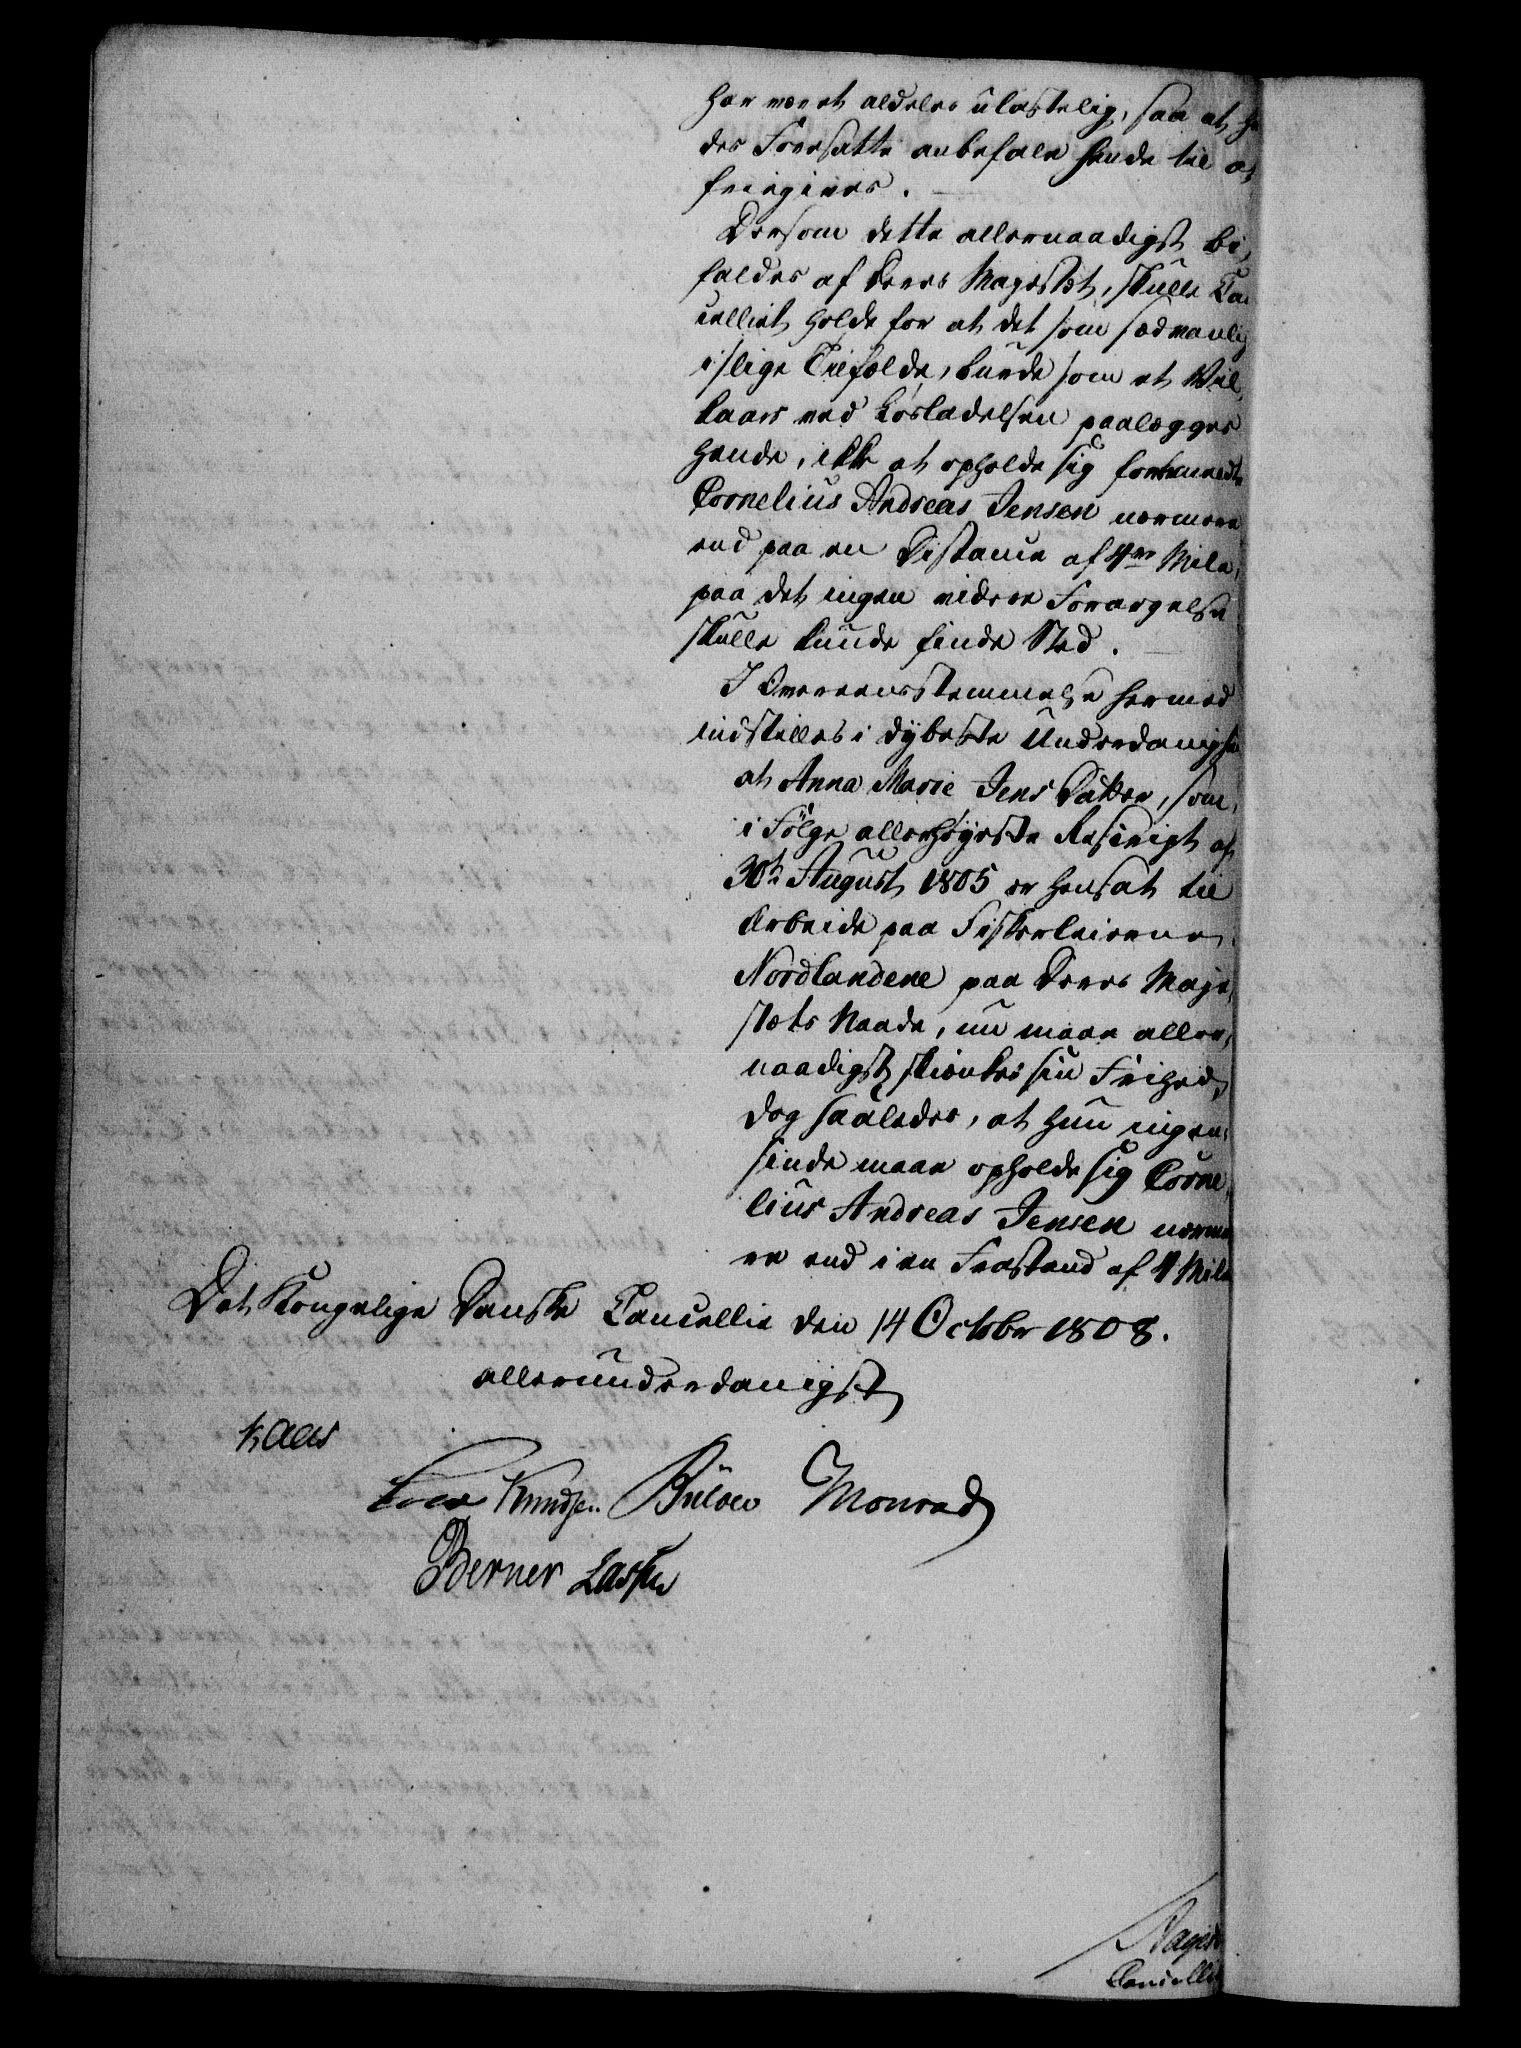 har været aldeles ulastelig, saa at hen
des Foresatte anbefale hende til at
friegives.
Dersom dette allernaadigst bi,
faldes af Deres Majestæt, skulle Can
celliet holde for at det som sædvanlig
i slige Tilfælde, burde som et Vil,
kaar ved Løsladelsen paalægges
hende, ikke at opholde sig forbemeldte
Cornelius Andreas Jensen nærmere
end paa en Distance af 4re Mile,
paa det ingen videre Forargelse
skulle kunde finde Sted.
I Overeensstemmelse hermed
indstilles i dybeste Underdanighed
at Anna Marie Jens Datter, som,
i Følge allerhøyeste Rescript af
30te August 1805 er hensat til
Arbeide paa Fiskerleierne
Nordlandene paa Deres Maje,
stæts Naade, nu maae aller,
naadigst skienkes sin Frihed,
dog saaledes, at hun ingen,
sinde maae opholde sig Corne,
lius Andreas Jensen nærme
re end i en Frastand af 4 Mile
Det Kongelige Danske Cancellie den 14 October 1808.
allerunderdanigst
Kaas
Knudsen Bülow Monrad
Berner Lassen
Cancellie